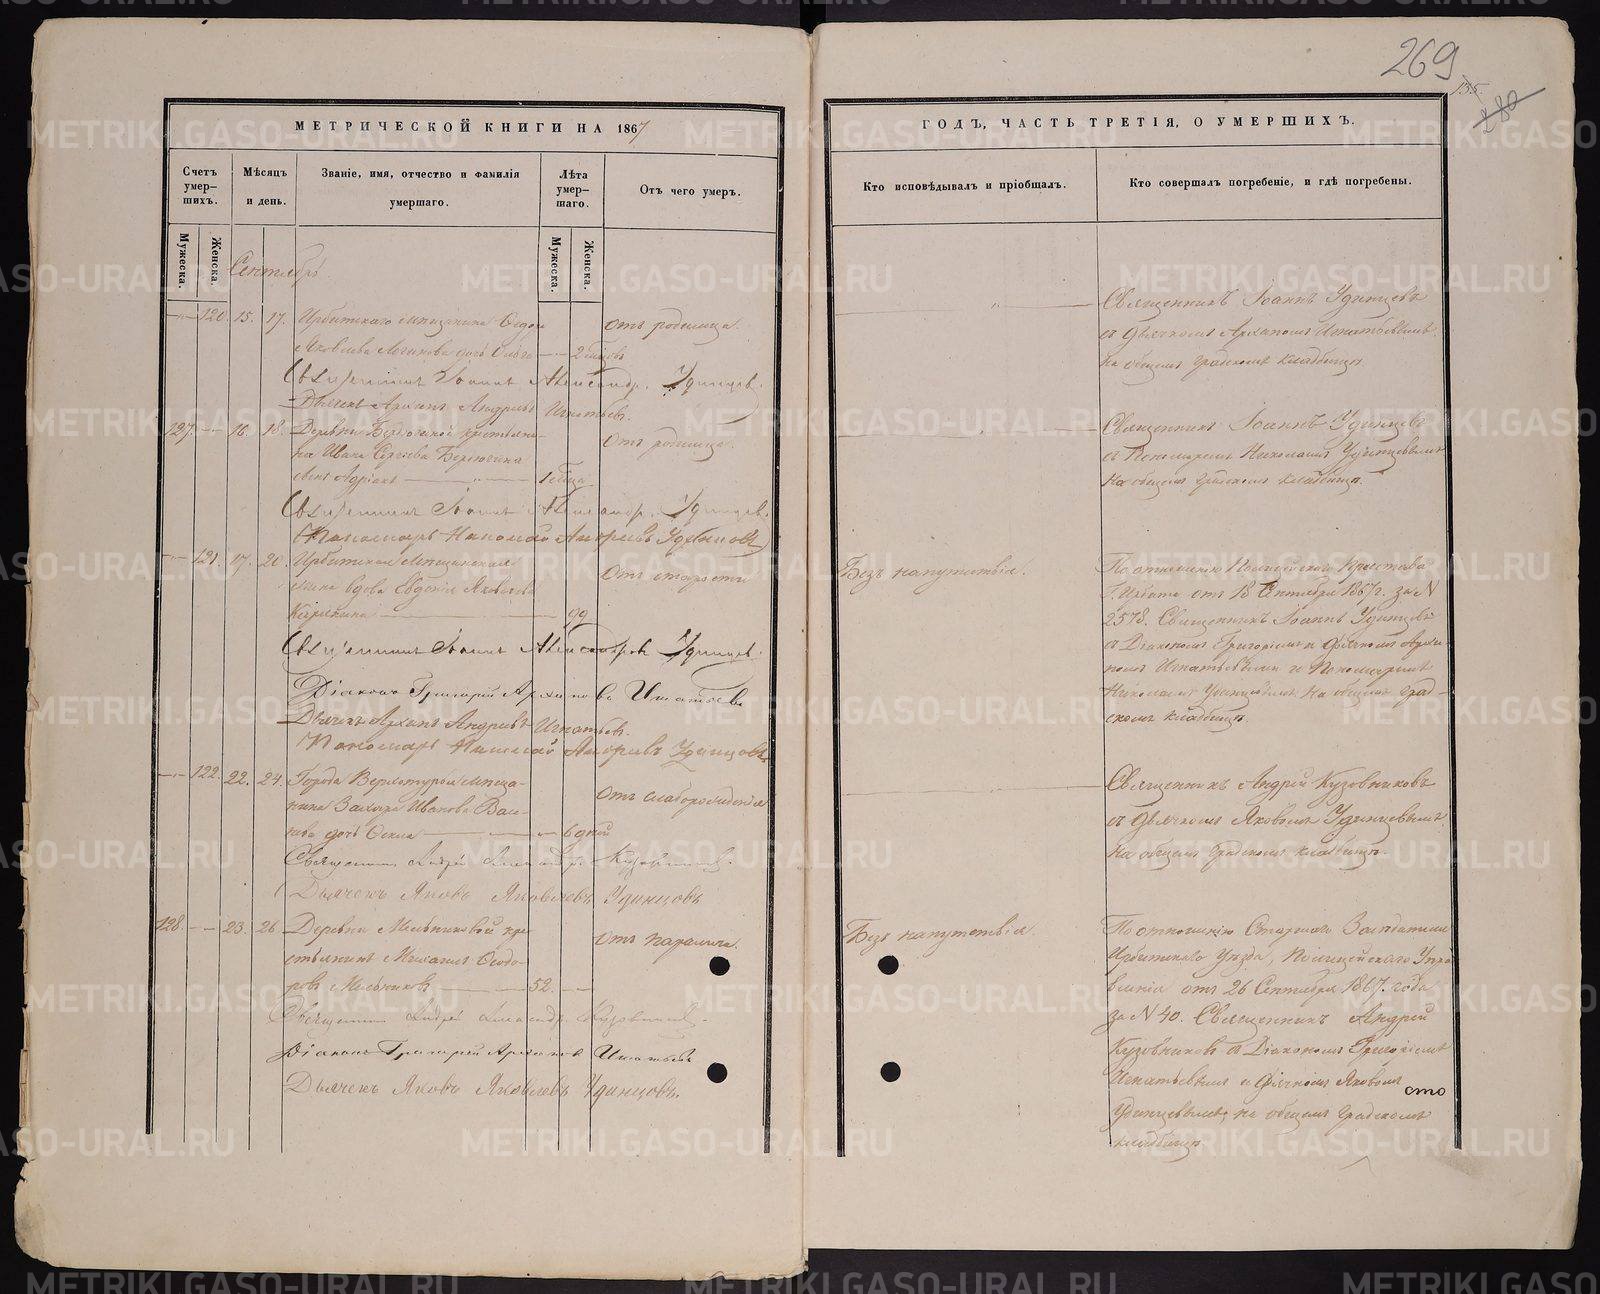 269
155.
280
МЕТРИЧЕСКОЙ КНИГИ НА 1867
ГОДЪ, ЧАСТЬ ТРЕТІЯ, О УМЕРШИХЪ.
Счетъ умер-
шихъ.
Мѣсяцъ
и день.
Званіе, имя, отчество и фамилія
умершаго.
Лѣта
умер-
шаго.
Отъ чего умеръ.
Кто исповѣдывалъ и пріобщалъ.
Кто совершалъ погребеніе, и гдѣ погребены.
Мужеска.
Женска.
Мужеска.
Женска.
Сентябрь
120. 15. 17. Ирбитскаго мѣщанина Ѳедора
Яковлева дочь Ольга
Отъ родимца.
Священникъ Іоаннъ Удинцевъ
съ Дьячкомъ Архипомъ Игнатьевымъ
на общемъ градскомъ кладбищѣ.
Священникъ Іоаннъ Александр. Удинцев.
Дьячекъ Архипъ Андреевъ Игнатьев.
127. 16. 18. Деревни крестьяни-
на Ивана Сергѣева
сынъ Адріанъ
Отъ родимца.
Священникъ Іоаннъ Удинцевъ
съ Пономаремъ Николаемъ Удинцевымъ
На общемъ градскомъ кладбищѣ.
Священникъ Іоаннъ Александр. Удинцев.
Пономарь Николай Андреевъ Удинцовъ
121. 17. 20. Ирбитская мѣщанская
жена вдова Евдокія Яковлева
99
Отъ старости
Безъ напутствія.
По отношенію Полицейскаго Пристава
Г. Ирбита отъ 18 Сентября 1867 г. за N
2578. Священникъ Іоаннъ Удинцевъ
съ Діакономъ Григоріемъ и дьячкомъ Архи-
помъ Игнатьевыми и Пономаремъ
Николаемъ Удинцевымъ на общемъ град-
скомъ кладбищѣ.
Священникъ Іоаннъ Александровъ Удинцев.
Діаконъ Григорій Архиповъ Игнатьевъ
Дьячекъ Архипъ Андреевъ Игнатьев.
Пономарь Николай Андреевъ Удинцовъ
122. 22. 24. Города Верхотурья мѣща-
нина Захара Иванова
дочь 6 дней
Отъ слаборожденія
Священникъ Андрей Кузовниковъ
съ дьячкомъ Яковомъ Удинцевымъ
На общемъ градскомъ кладбищѣ.
Священникъ Андрей Александр. Кузовников.
Дьячекъ Яковъ Яковлевъ Удинцовъ
128. 23. 26. Деревни Мельниковой кре-
стьянинъ Михаилъ Ѳедо-
ровъ Мельниковъ 52.
Отъ паралича.
Безъ напутствія.
По отношенію Старшаго Засѣдателя
Ирбитскаго Уѣзда, Полицейскаго Упра
вленія отъ 26 Сентября 1867. года
за N 40. Священникъ Андрей
Кузовниковъ съ Діакономъ Григоріемъ
Игнатьевымъ и дьячкомъ Яковомъ
сто
Удинцевымъ, на общемъ градскомъ
кладбищѣ.
Священникъ Андрей Александр. Кузовников.
Діаконъ Григорій Архиповъ Игнатьевъ
Дьячекъ Яковъ Яковлевъ Удинцовъ.
METRIKI.GASO-URAL.RU